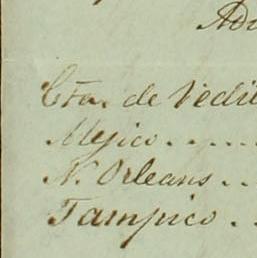 Adu
Cta. de Vedil
Mejico . . . . .
N. Orleans . .
Tampico .